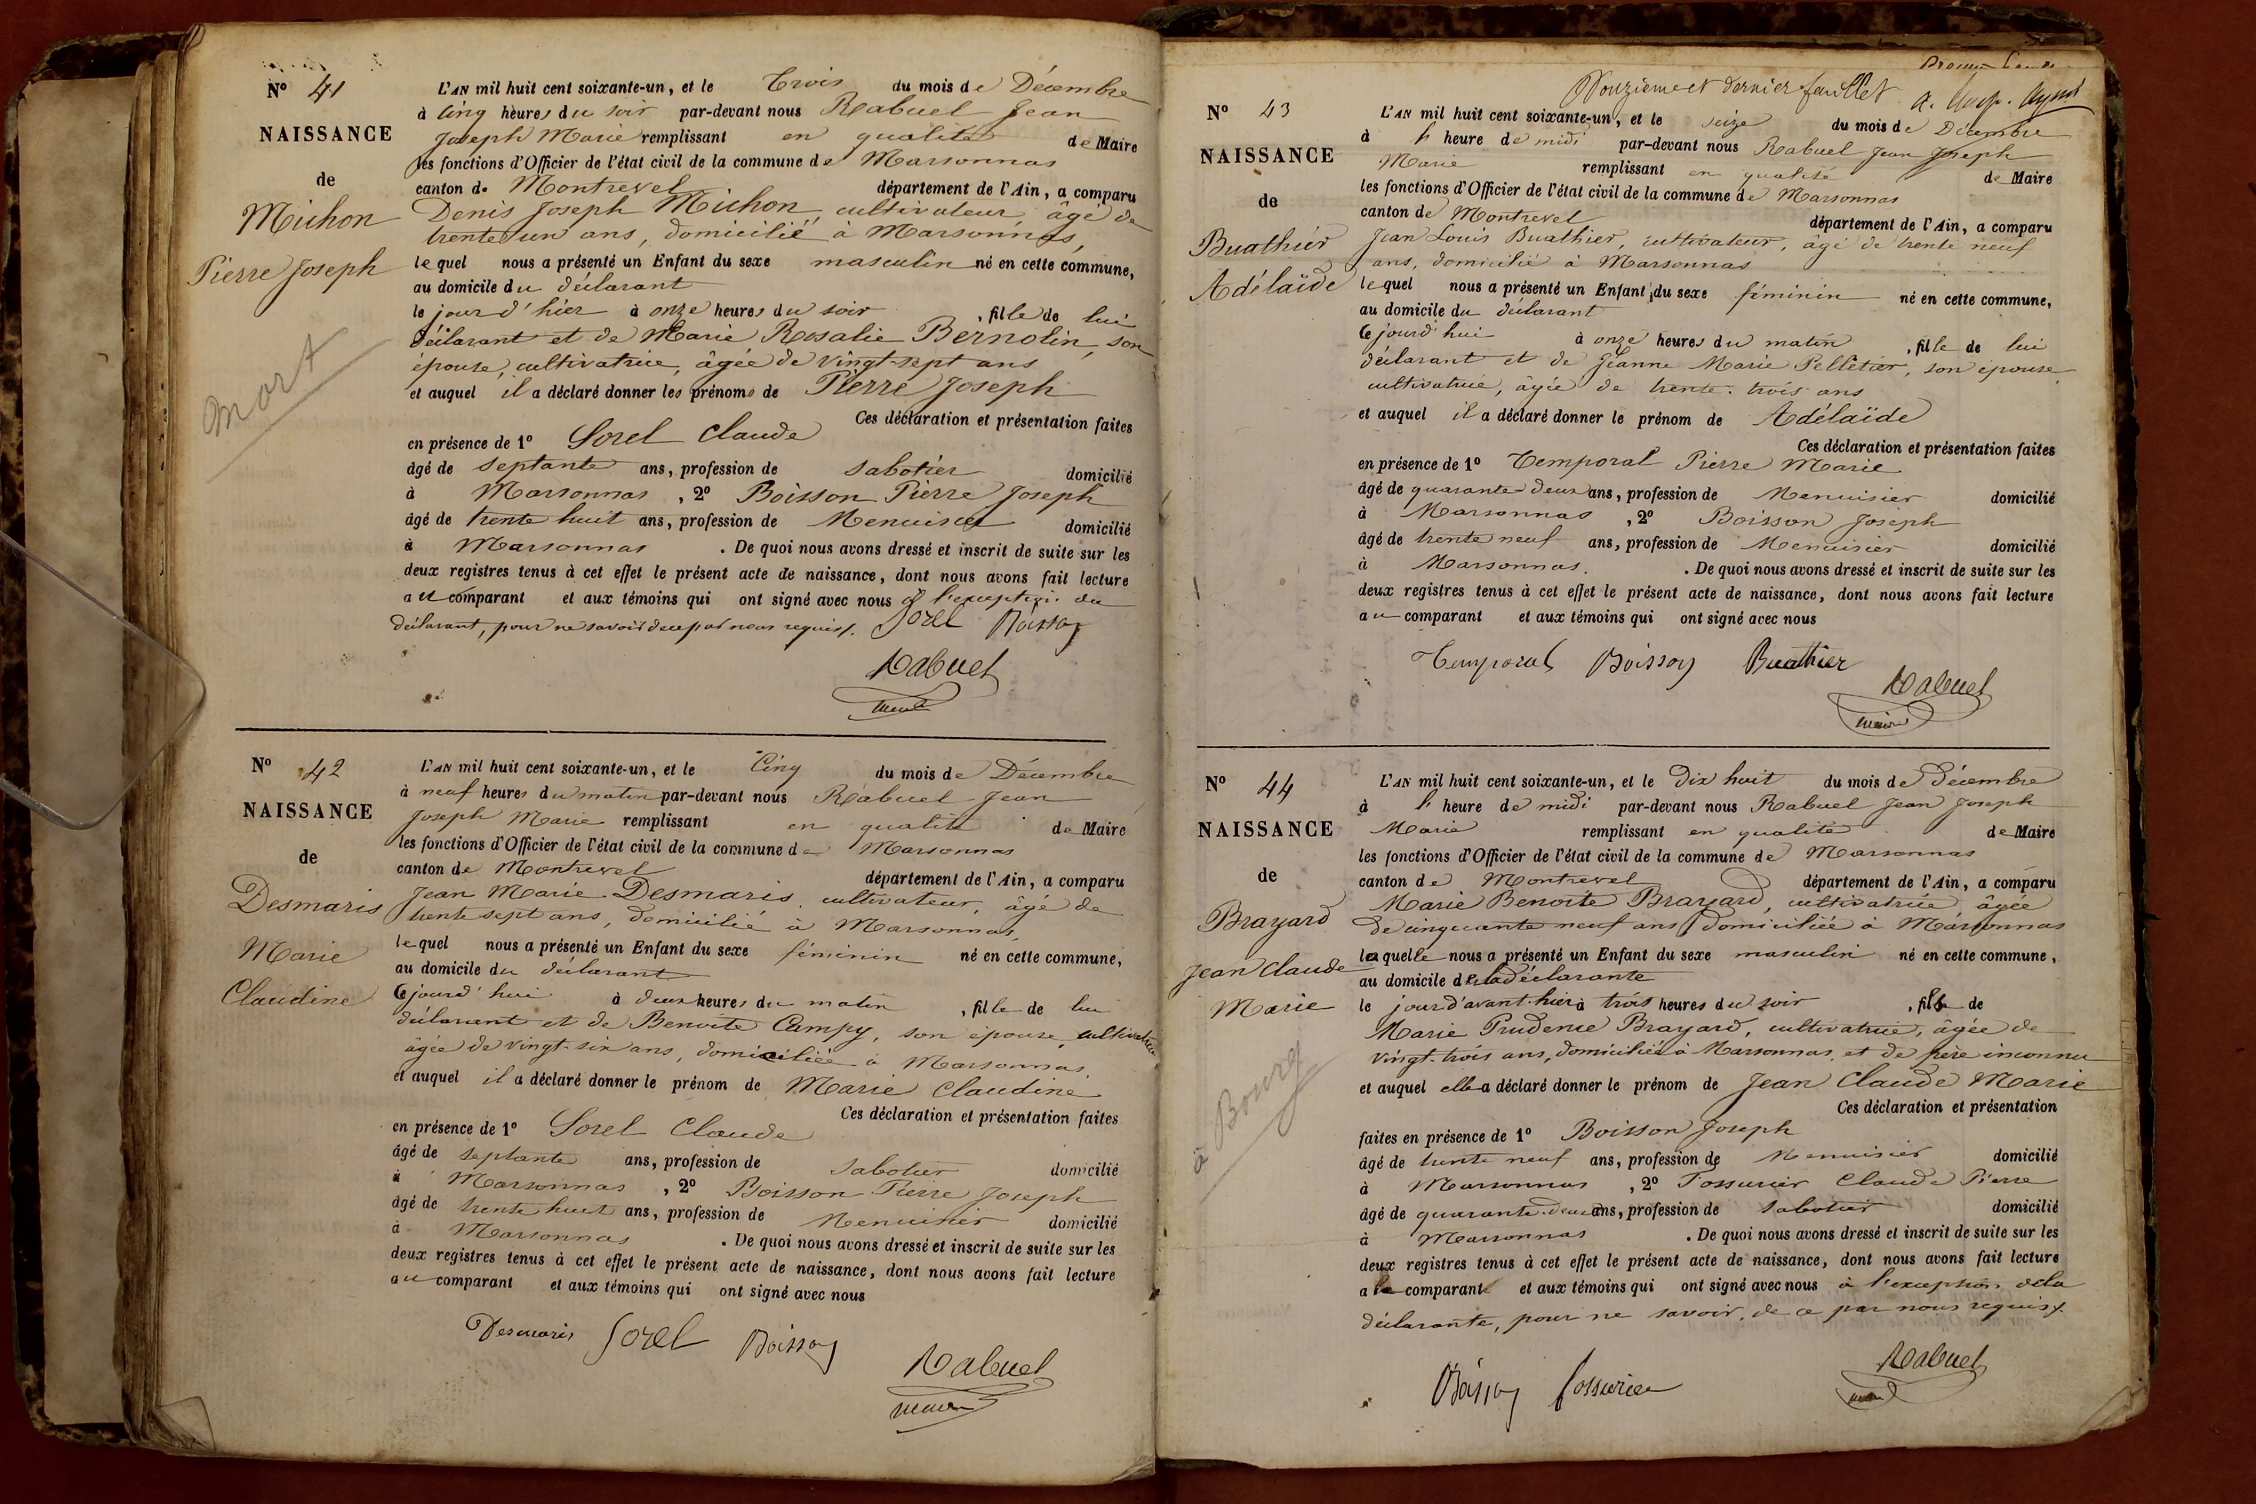 N° 41
NAISSANCE
de
Michon
Pierre Joseph
mort
L'AN mil huit cent soixante-un, et le Trois du mois de Décembre
à Cinq heures du soir par-devant nous Rabuel Jean
Joseph Marie remplissant en qualité de Maire
les fonctions d'Officier de l'état civil de la commune de Marsonnas
canton de Montrevel département de l'Ain, a comparu
Denis Joseph Michon, cultivateur, âgé de
trente un ans, domicilié à Marsonnas,
lequel nous a présenté un Enfant du sexe masculin né en cette commune,
au domicile du déclarant
le jour d'hier à onze heures du soir, fils de lui
déclarant et de Marie Rosalie Bernolin, son
épouse, cultivatrice, âgée de vingt-sept ans
et auquel il a déclaré donner les prénoms de Pierre Joseph
Ces déclaration et présentation faites
en présence de 1° Sorel Claude
âgé de septante ans, profession de sabotier domicilié
à Marsonnas, 2° Boisson Pierre Joseph
âgé de trente huit ans, profession de Menuisier domicilié
à Marsonnas. De quoi nous avons dressé et inscrit de suite sur les
deux registres tenus à cet effet le présent acte de naissance, dont nous avons fait lecture
au comparant et aux témoins qui ont signé avec nous à l'exception du
déclarant, pour ne savoir de ce par nous requis. Sorel Boisson
Rabuel
maire
N° 42
NAISSANCE
de
Desmaris
Marie
Claudine
L'AN mil huit cent soixante-un, et le Cinq du mois de Décembre
à neuf heures du matin par-devant nous Rabuel Jean
Joseph Marie remplissant en qualité de Maire
les fonctions d'Officier de l'état civil de la commune de Marsonnas
canton de Montrevel département de l'Ain, a comparu
Jean Marie Desmaris, cultivateur, âgé de
trente sept ans, domicilié à Marsonnas,
lequel nous a présenté un Enfant du sexe féminin né en cette commune,
au domicile du déclarant
Cejourd'hui à deux heures du matin, fille de lui
déclarant et de Benoite Campy, son épouse, cultivatrice
âgée de vingt-six ans, domiciliée à Marsonnas,
et auquel il a déclaré donner le prénom de Marie Claudine
Ces déclaration et présentation faites
en présence de 1° Sorel Claude
âgé de septante ans, profession de sabotier domicilié
à Marsonnas, 2° Boisson Pierre Joseph
âgé de trente huit ans, profession de Menuisier domicilié
à Marsonnas. De quoi nous avons dressé et inscrit de suite sur les
deux registres tenus à cet effet le présent acte de naissance, dont nous avons fait lecture
au comparant et aux témoins qui ont signé avec nous
Desmaris Sorel Boisson
Rabuel
maire
Douzième et dernier feuillet
N° 43
NAISSANCE
de
Buathier
Adélaïde
L'AN mil huit cent soixante-un, et le seize du mois de Décembre
à l' heure de midi par-devant nous Rabuel Jean Joseph
Marie remplissant en qualité de Maire
les fonctions d'Officier de l'état civil de la commune de Marsonnas
canton de Montrevel département de l'Ain, a comparu
Jean Louis Buathier, cultivateur, âgé de trente neuf
ans, domicilié à Marsonnas
lequel nous a présenté un Enfant du sexe féminin né en cette commune,
au domicile du déclarant
Cejourd'hui à onze heures du matin, fille de lui
déclarant et de Jeanne Marie Pelletier, son épouse,
cultivatrice, âgée de trente-trois ans
et auquel il a déclaré donner le prénom de Adélaïde
Ces déclaration et présentation faites
en présence de 1° Temporal Pierre Marie
âgé de quarante deux ans, profession de Menuisier domicilié
à Marsonnas, 2° Boisson Joseph
âgé de trente neuf ans, profession de Menuisier domicilié
à Marsonnas. De quoi nous avons dressé et inscrit de suite sur les
deux registres tenus à cet effet le présent acte de naissance, dont nous avons fait lecture
au comparant et aux témoins qui ont signé avec nous
Temporal Boisson Buathier
Rabuel
maire
N° 44
NAISSANCE
de
Brayard
Jean Claude
Marie
à Bourg
L'AN mil huit cent soixante-un, et le Dix huit du mois de Décembre
à l' heure de midi par-devant nous Rabuel Jean Joseph
Marie remplissant en qualité de Maire
les fonctions d'Officier de l'état civil de la commune de Marsonnas
canton de Montrevel département de l'Ain, a comparu
Marie Benoite Brayard, cultivatrice âgée
de cinquante neuf ans domiciliée à Marsonnas
laquelle nous a présenté un Enfant du sexe masculin né en cette commune,
au domicile de la déclarante
le jour d'avant-hier à trois heures du soir, fils de
Marie Prudence Brayard, cultivatrice, âgée de
vingt-trois ans, domiciliée à Marsonnas, et de père inconnu
et auquel elle a déclaré donner le prénom de Jean Claude Marie
Ces déclaration et présentation
faites en présence de 1° Boisson Joseph
âgé de trente neuf ans, profession de Menuisier domicilié
à Marsonnas, 2° Fossurier Claude Pierre
âgé de quarante-deux ans, profession de sabotier domicilié
à Marsonnas. De quoi nous avons dressé et inscrit de suite sur les
deux registres tenus à cet effet le présent acte de naissance, dont nous avons fait lecture
a la comparante et aux témoins qui ont signé avec nous à l'exception de la
déclarante, pour ne savoir, de ce par nous requis.
Boisson fossurier
Rabuel
maire